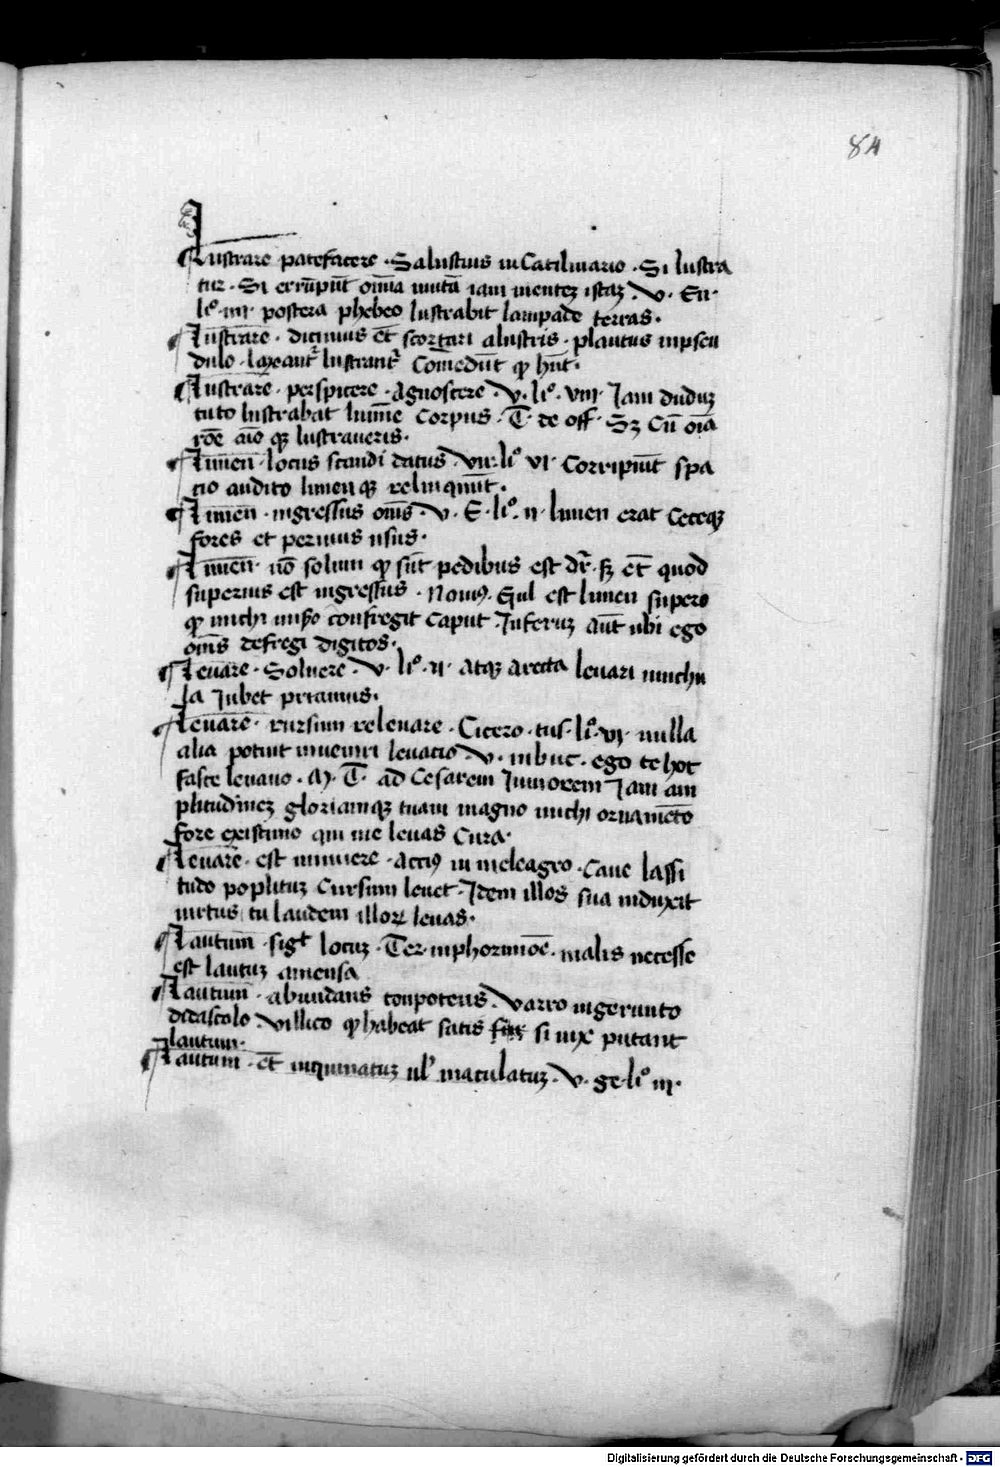 84
Lustrare patefacere · Salustius in Catilinario · Si lustra
tur · Si errūpūt om̄ia mutā iam mentez istaz · v · En ·
li° · iiii · postera phebeo lustrabit lampade terras ·
Lustrare · dicimus et̄ scortari alustris · plautus inpseu
dulo · lustrant᷑ Comedūt ꝙ hn̄t ·
Lustrare · perspicere · Agnoscere · v · li° · viii · Iam duduz
tuto lustrabat lumīe Corpus · T · de off · Sz Cū oīa
rōe aīo qz lustraueris ·
Limen · locus scandi datus · vir · li° vi · Corripiūt spa
cio audito limen qz relinquūt ·
Limen · ingressus om̄s · v · E · li° · ii · limen erat Ceceqz
fores et peruius usus ·
Limen · nō solum ꝙ sūt pedibus est dr̄ · sz et̄ quod
superius est ingressus · Nouiꝰ · est limen supero
ꝙ michi confregit Caput · Inferuz aūt ubi ego
om̄s defregi digitos ·
Leuare · Soluere · v · li° · ii · atqz arcta leuari michu
la Iubet priamus ·
Leuare · rursum releuare · Cicero · tus · li° · vi · nulla
alia potuit inueniri leuatio · v · inbuc · ego te hoc
fasce leuauo · M · T · ad Cesarem Iuniorem Iam am
plitudinez gloriamqz tuam magno michi ornamēto
fore existimo qui me leuas Cura ·
Leuare · est minuere · Acciꝰ in meleagro · Caue lassi
tudo poplituz Cursum leuet · Idem illos sua induxit
uirtus tu laudem illoꝝ leuas ·
Lautum · sigᵗ locuz · Ter · inphormiōe · malis necesse
est lautuz amensa
Lautum · abundans conpotens · Varro ingerunto
didascolo · Villico ꝙ habeat satis si uix putant
lautum ·
Lautum · et̄ inquinatuz ul' maculatuz · v · ge · li° iii ·
Digitalisierung gefördert durch die Deutsche Forschungsgemeinschaft - DFG